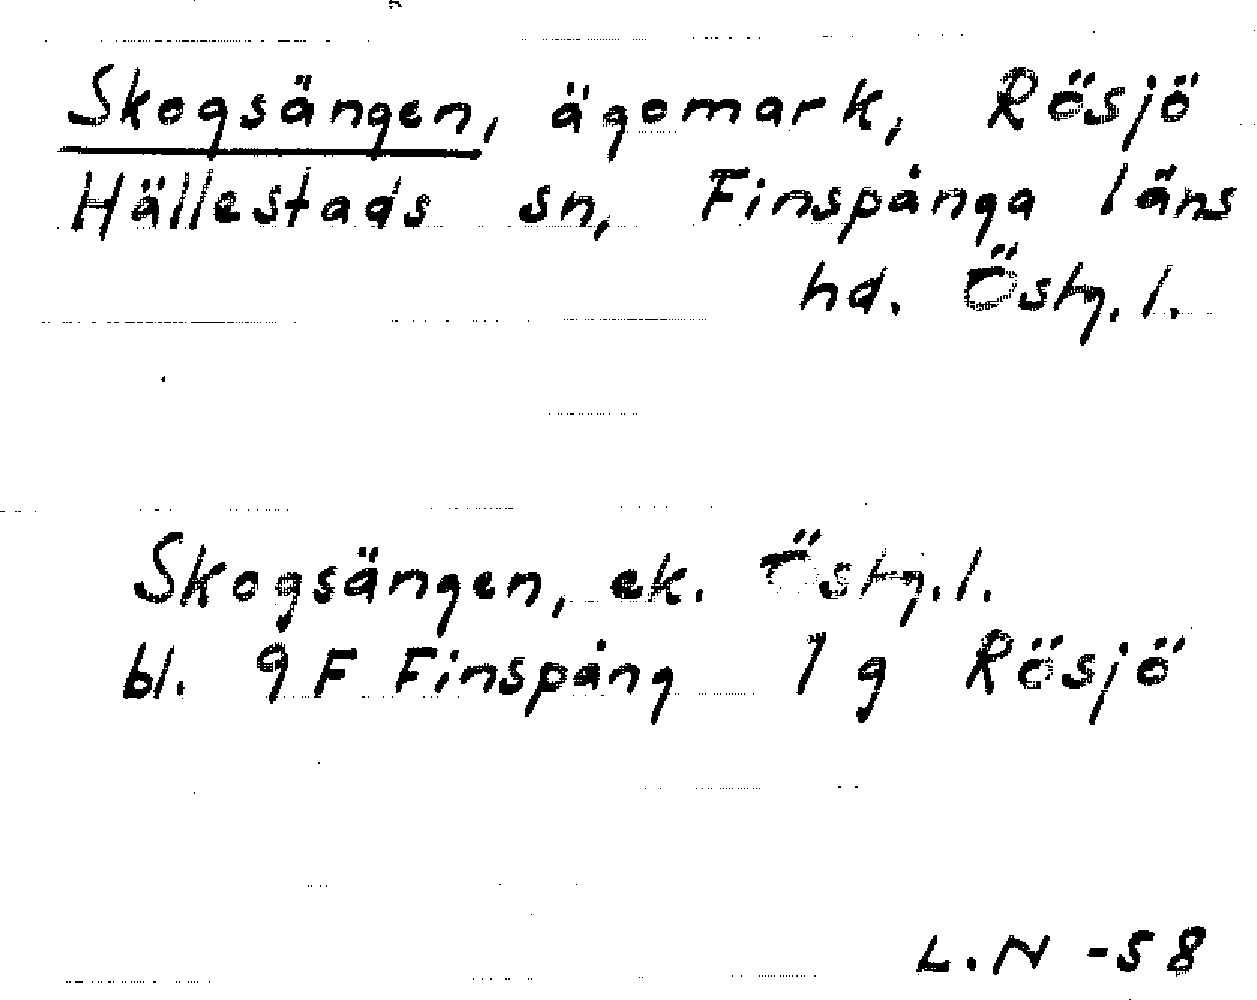 Skogsängen, ägomark, Rösjö
Hällestads sn, Finspånga läns
hd. Östg. l.
Skogsängen, ek. Östg. l.
bl. 9F Finspång 1 g Rösjö
L.N -58